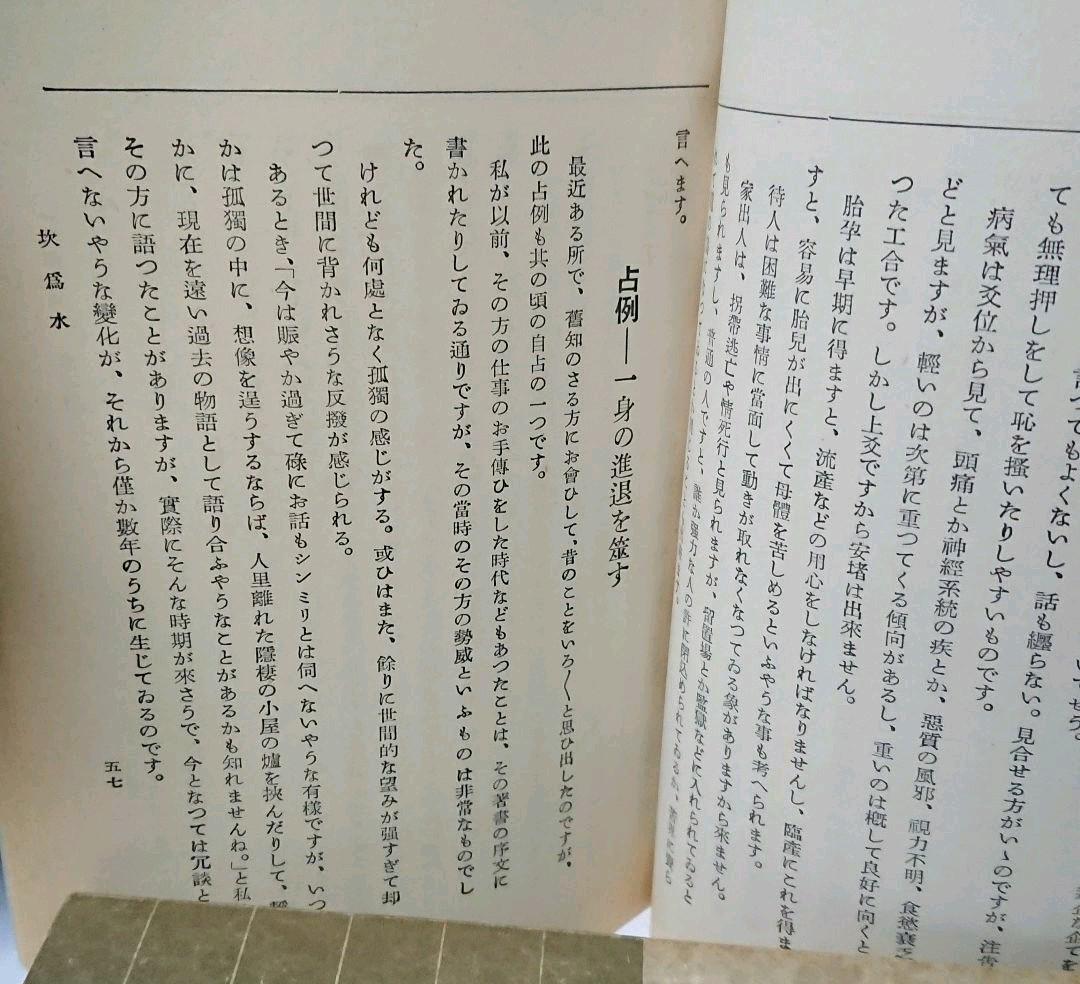 言つてもよくないし、話も纒らない。見合せる方がいゝのですが、注告
ても無理押しをして恥を搔いたりしやすいものです。
病氣は爻位から見て、頭痛とか神經系統の疾とか、惡質の風邪、視力不明、食慾衰乏
どと見ますが、輕いのは次第に重つてくる傾向があるし、重いのは槪して良好に向くと
つた工合です。しかし上爻ですから安堵は出來ません。
胎孕は早期に得ますと、流產などの用心をしなければなりませんし、臨產にこれを得ま
すと、容易に胎兒が出にくくて母體を苦しめるといふやうな事も考へられます。
待人は困難な事情に當面して動きが取れなくなつてゐる象がありますから來ません。
家出人は、拐帶逃亡や情死行と見られますが、留置場とか監獄などに入れられてゐると
も見られますし、普通の人ですと、誰か强力な人の許に閉込められてゐるか、
言へます。
占例――一身の進退を筮す
最近ある所で、舊知のさる方にお會ひして、昔のことをいろ〳〵と思ひ出したのですが、
此の占例も其の頃の自占の一つです。
私が以前、その方の仕事のお手傳ひをした時代などもあつたことは、その著書の序文に
書かれたりしてゐる通りですが、その當時のその方の勢威といふものは非常なものでし
た。
けれども何處となく孤獨の感じがする。或ひはまた、餘りに世間的な望みが强すぎて却
つて世間に背かれさうな反撥が感じられる。
あるとき、「今は賑やか過ぎて碌にお話もシンミリとは伺へないやうな有樣ですが、いつ
かは孤獨の中に、想像を逞うするならば、人里離れた隱棲の小屋の爐を挾んだりして、
かに、現在を遠い過去の物語として語り合ふやうなことがあるかも知れませんね。」と私
その方に語つたことがありますが、實際にそんな時期が來さうで、今となつては冗談と
言へないやうな變化が、それから僅か數年のうちに生じてゐるのです。
坎爲水
五七